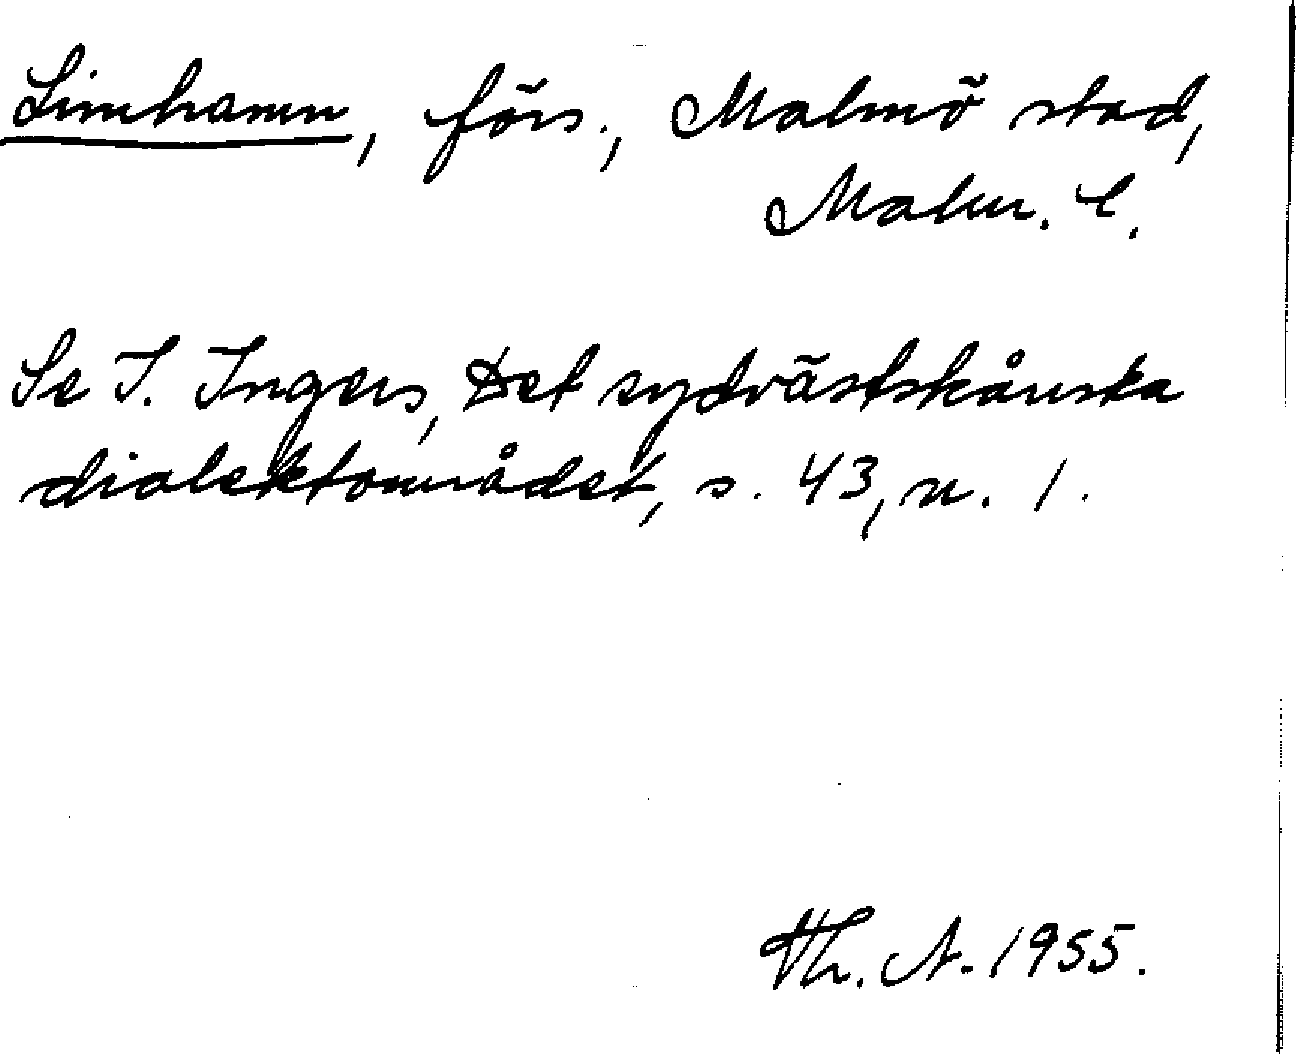 Limhamn, förs., Malmö stad,
Malm. l.
Se I. Ingers, Det sydvästskånska
dialektområdet, s. 43, n. 1.
Th. A. 1955.